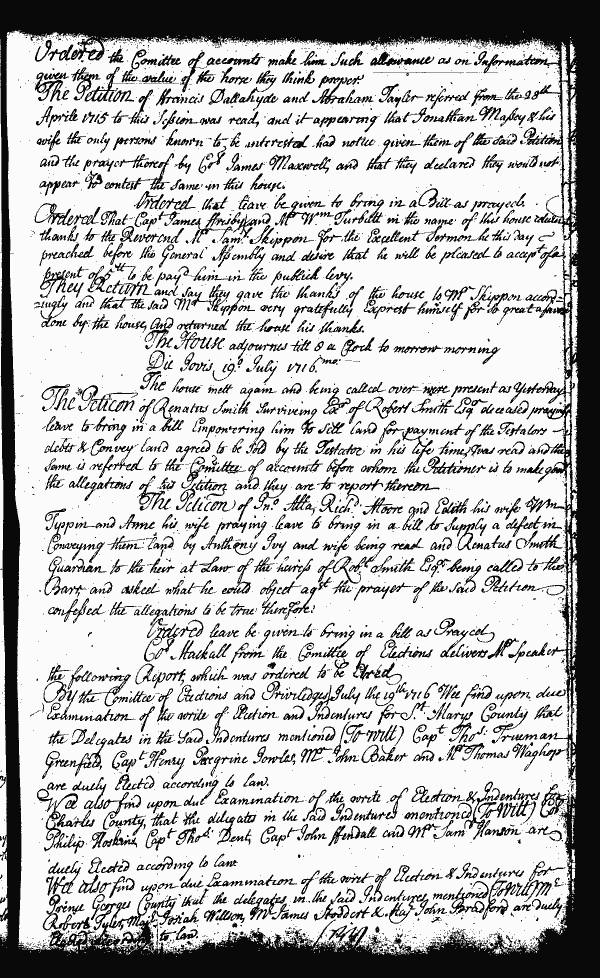 Ordered the Comittee of accounts make him Such allowance as on Information
given them of the value of the horse they think proper.
The Petition of Francis Dallahyde and Abraham Tayler referred from the 29th
Aprile 1715 to this Session was read, and it appearing that Jonathan Massey & his
wife the only persons known to be interested had notice given them of the said Petition
and the prayer thereof by Col James Maxwell, and that they declared they would not
appear to contest the same in this house.
Ordered that leave be given to bring in a Bill as prayed.
Ordered That Capt James and Mr Wm Turbutt in the name of this house
thanks to the Reverend Mr Saml Skippon for the Excellent Sermon he this day
preached before the General Assembly and desire that he will be pleased to accept of a
present of to be payd him in the publick levy.
They Return and say they gave the thanks of the house to Mr Skippon accord=
=ingly and that the said Mr Skippon very gratefully Exprest himself for so great a favour
done by the house, and returned the house his thanks.
The House adjournes till 8 a Clock to morrow morning
Die Jovis 19o July 1716
The house mett again and being called over were present as Yesterday
The Peticon of Renatus Smith Surviveing Exr of Robert Smith Esqr deceased praying
leave to bring in a bill Empowering him to Sell land for payment of the Testators
debts & Convey land agreed to be Sold by the Testator in his life time, was read and the
Same is referred to the Comittee of accounts before whom the Petitioner is to make good
the allegations of his Petition and they are to report thereon
The Peticon of Jno Atta, Richd Moore and Edith his wife Wm
Tippin and Anne his wife praying leave to bring in a bill to Supply a defect in
Conveying them land by Anthony Ivy and wife being read and Renatus Smith
Guardian to the heir at Law of the heires of Robt Smith Esqr being called to the
Barr and asked what he could object agst the prayer of the Said Petition
confessed the allegations to be true therefore.
Ordered leave be given to bring in a bill as Prayed
Col Mackall from the Comittee of Elections delivers Mr Speaker
the following Report, which was ordired to be Entred
By the Comittee of Elections and Priviledges July the 19th 1716 Wee find upon due
Examination of the write of Election and Indentures for St Marys County that
the Delegates in the Said Indentures mentioned (To Witt) Capt Thos Trueman
Greenfield, Capt Henry Peregrine Jowles, Mr John Baker and Mr Thomas Waghop
are duely Elected according to law.
Wee also find upon due Examination of the write of Election & Indentures for
Charles County, that the delegates in the Said Indentures mentioned (To Witt) Col
Philip Hoskins, Capt Thos Dent, Capt John Fendall and Mr Saml Hanson are
duely Elected according to law
Wee also find upon due Examination of the writ of Election & Indentures for
Prince Georges County that the delegates, in the Said Indentures mentioned (To Witt) Mr
Robert Tyler, Majr Josiah Willson, Mr James Stoddert & Maj John Bradford are duely
Elected according to law.